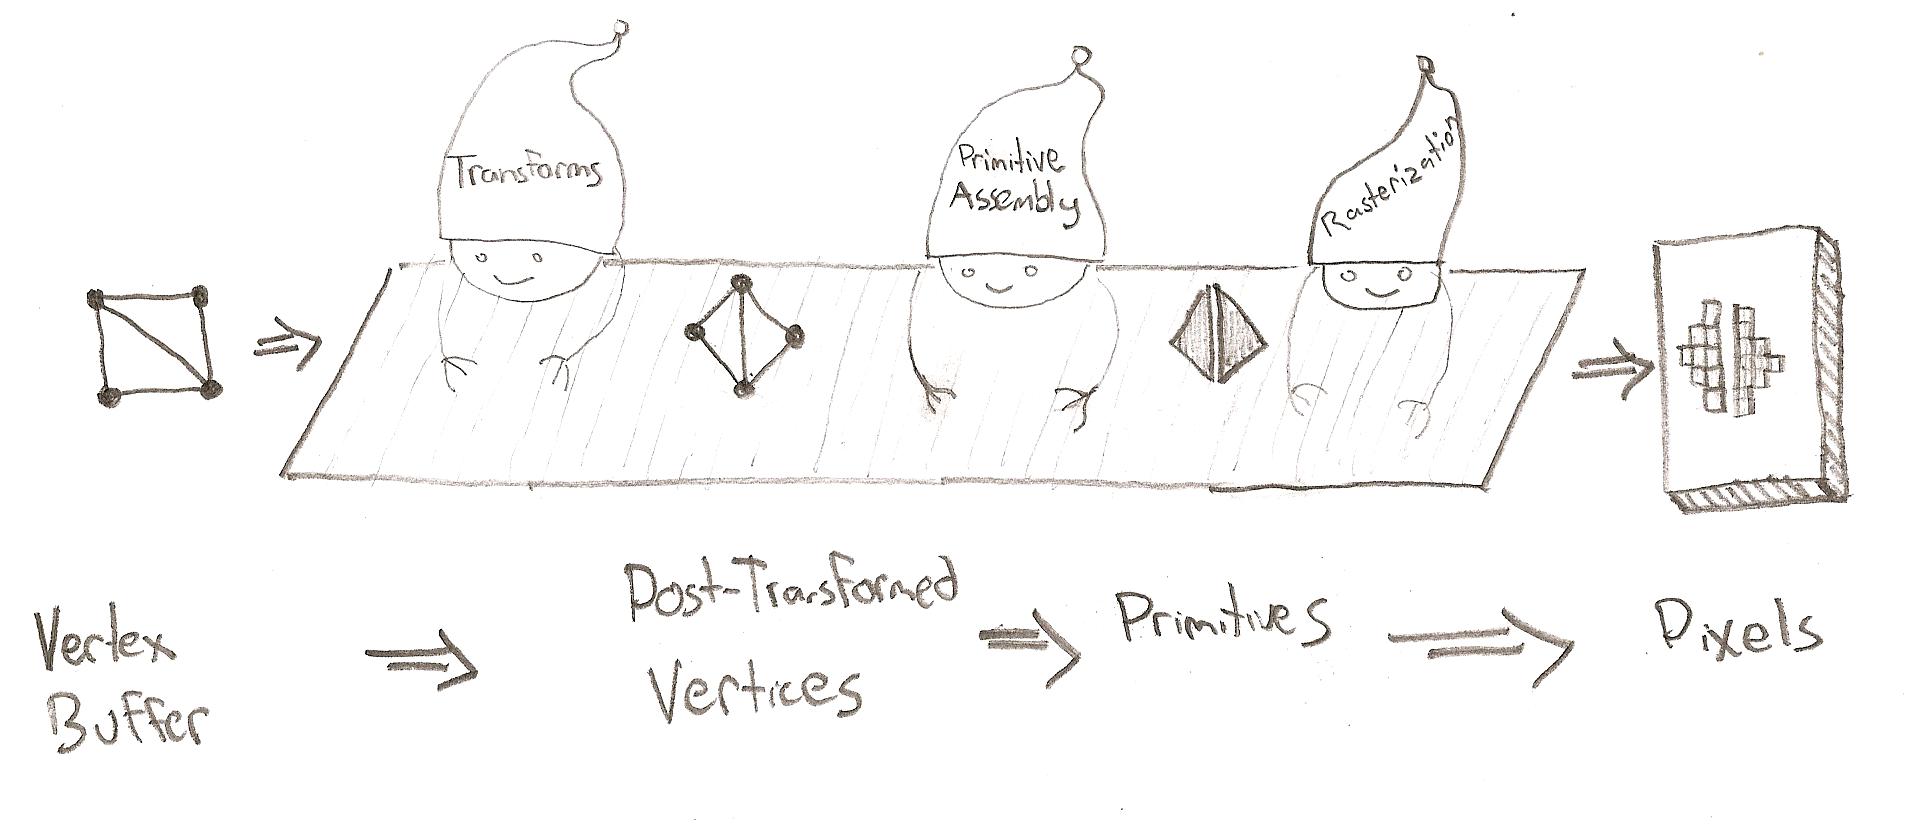 Transforms
Primitive
Assembly
Rasterization
Vertex
Buffer
Post-Transformed
Vertices
Primitives
Pixels